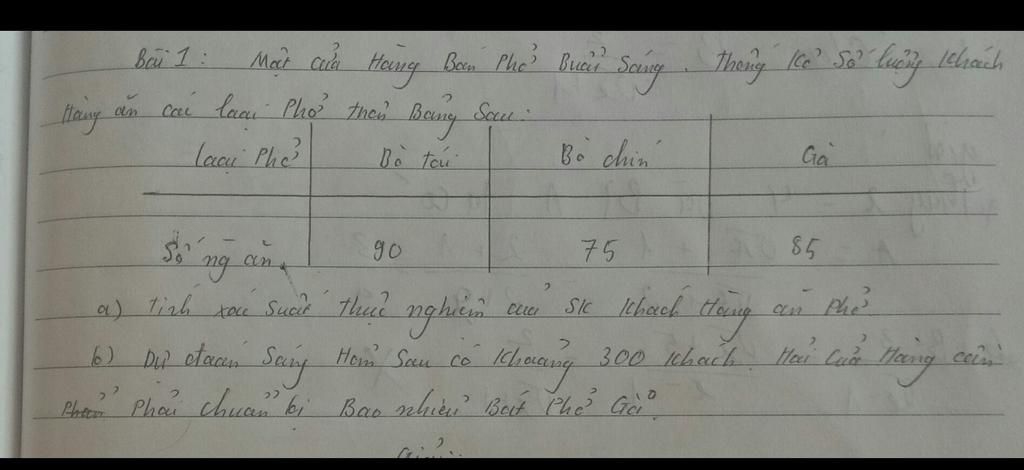 Bài 1: Một cửa Hàng Bán Phở Buổi Sáng. Thống Kê Số lượng Khách
Hàng ăn các loại Phở theo Bảng Sau:
loại Phở Bò tái Bò chín Gà
Số ng ăn 90 75 85
a) Tính xác suất thực nghiệm của SK Khách Hàng ăn Phở
b) Dự đoán Sáng Hôm Sau có Khoảng 300 Khách. Hỏi Cửa Hàng cần
Phải chuẩn bị Bao nhiêu Bát Phở Gà?
Giải: